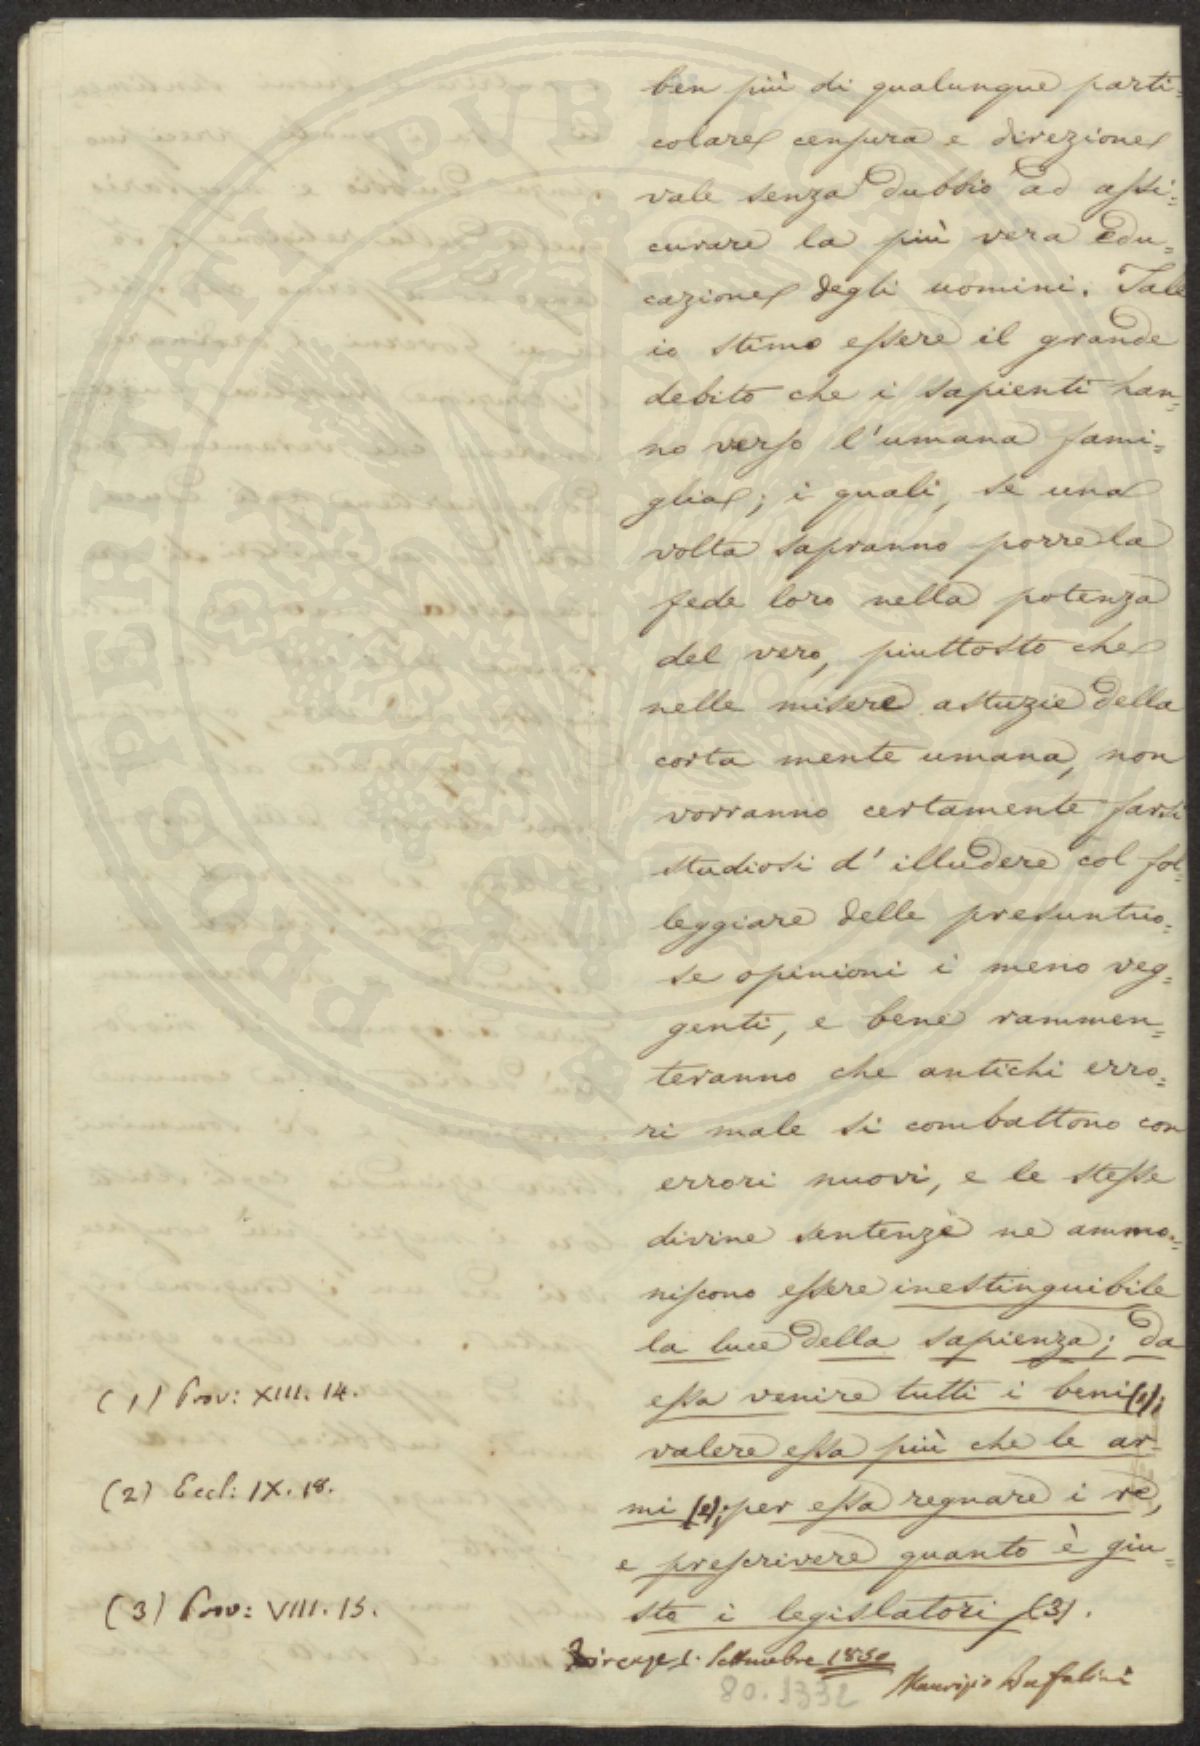 ben più di qualunque parti-
colare censura e direzione
vale senza dubbio ad assi=
curare la più vera edu=
cazione degli uomini. Tale
io stimo essere il grande
debito che i sapienti han=
no verso l'umana fami=
glia; i quali, se una
volta sapranno porre la
fede loro nella potenza
del vero, piuttosto che
nelle misere astuzie della
corta mente umana, non
vorranno certamente farsi
studiosi d'illudere col fol=
leggiare delle presuntuo=
se opinioni i meno veg=
genti, e bene rammen=
teranno che antichi erro=
ri male si combattono con
errori nuovi, e le stesse
divine sentenze ne ammo=
niscono essere inestinguibile
la luce della sapienza; da
essa venire tutti i beni (1);
valere essa più che le ar=
mi (2); per essa regnare i re,
e prescrivere quanto è giu=
sto i legislatori (3).
(1) Prov: XIII. 14.
(2) Eccl: IX. 18.
(3) Prov: VIII. 15.
Firenze 1. Settembre 1850
Maurizio Bufalini
80.1332
PROSPERITATI PVBLICAE